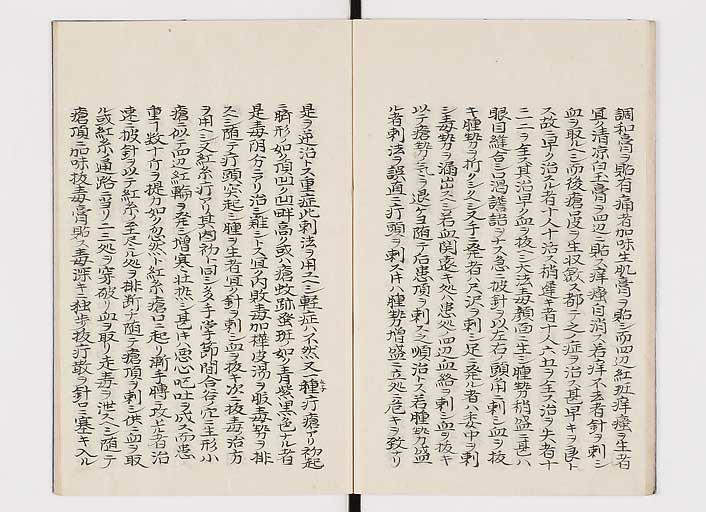 調和膏ヲ貼有痛者加味生肌膏ヲ貼シ而四辺紅斑痒瘙ヲ生者
宜ク清涼白玉膏ヲ四辺ニ貼ス痒瘙自消ス若痒不去者針ヲ刺シ
血ヲ取ルヘシ而後瘡皮ヲ生収斂ス都テ之ノ症ヲ治ス甚早キヲ良ト
ス故ニ早ク治ル者十人ニ十治ス稍遅キ者十人六七ヲ全ス治ヲ失者十
二三ヲ全ス其治早ク血ヲ抜ヲ大法毎顔面ニ生シ腫勢稍盛ニ甚ハ
眼目縫合シ口渇譫語ヲナス急ニ披針ヲ以左右ノ頭角ニ刺シ血ヲ抜
キ腫勢ヲ折クシ又手ニ発者ハ尺沢ヲ刺シ足ニ発ル者ハ委中ヲ刺
シ毒勢ヲ漏出ス若血関遠キ処ハ患処四辺血絡ニ刺シ血ヲ抜キ
以テ瘡勢ニ随テ后患頂ヲ刺ス之順治トス若腫勢盛
ル者刺法ヲ誤直ニ疔頭ヲ刺ス片ハ腫勢増盛ニ立処ニ危キヲ致ナリ
是ヲ逆治トス重症此刺法ヲ用ヘシ軽症ハ不然又一種疔瘡アリ初起
臍形ノ如ク頂凹ク四畔高ク或ハ瘡蚊跡蚤斑ノ如ク青紫黒色ナル者
是毒陰分ニアリ治シ難シトス宜ク内敗毒加樺皮湯ヲ服毒勢ヲ排
スヘシ随テ疔頭突起シ腫ヲ生者宜ク針ヲ刺シ血ヲ抜キ次ニ抜毒治方
ヲ用ヘシ又紅糸疔アリ其内初ニ同シ多ク手掌節間合谷穴ニ生形小
瘡ニ似テ四辺紅輪ヲ発シ増寒壮熱シ甚キハ悪心嘔吐ヲ成ス而患
重キ数十斤ヲ提カ如ク忽然ト紅糸瘡口ニ起リ漸ク手臂ニ攻上者治
速ニ披針ヲ以テ紅糸ノ至尽ル処ヲ排断ナ随テ瘡頂ヲ刺シ供ニ血ヲ取
ル或紅糸ノ通路ニ当リ二三処ヲ穿破リ血ヲ取リ走毒ヲ泄スヘシ随テ
瘡頂ニ加味抜毒膏ヲ貼ス毒深キニ独歩抜疔散ヲ針口ニ塞キ入ル